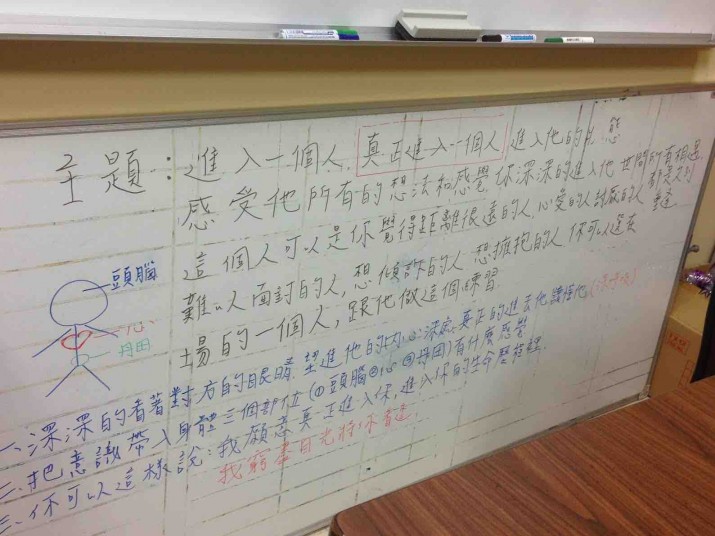 主題：進入一個人，真正進入一個人，進入他的狀態
感受他所有的想法和感覺，你深深的進入他 世間所有相遇，都是久別重逢
這個人可以是你覺得距離很遠的人，心愛的人，討厭的人
難以面對的人，想傾訴的人，想擁抱的人，你可以選在
場的一個人，跟他做這個練習.
頭腦
心
丹田
一、深深的看著對方的眼睛，望進他的內心深處，真正的進去他，讀懂他
二、把意識帶入身體三個部位(①頭腦②心③丹田)有什麼感覺
三、你可以這樣說：我願意真正進入你，進入你的生命歷程裡.